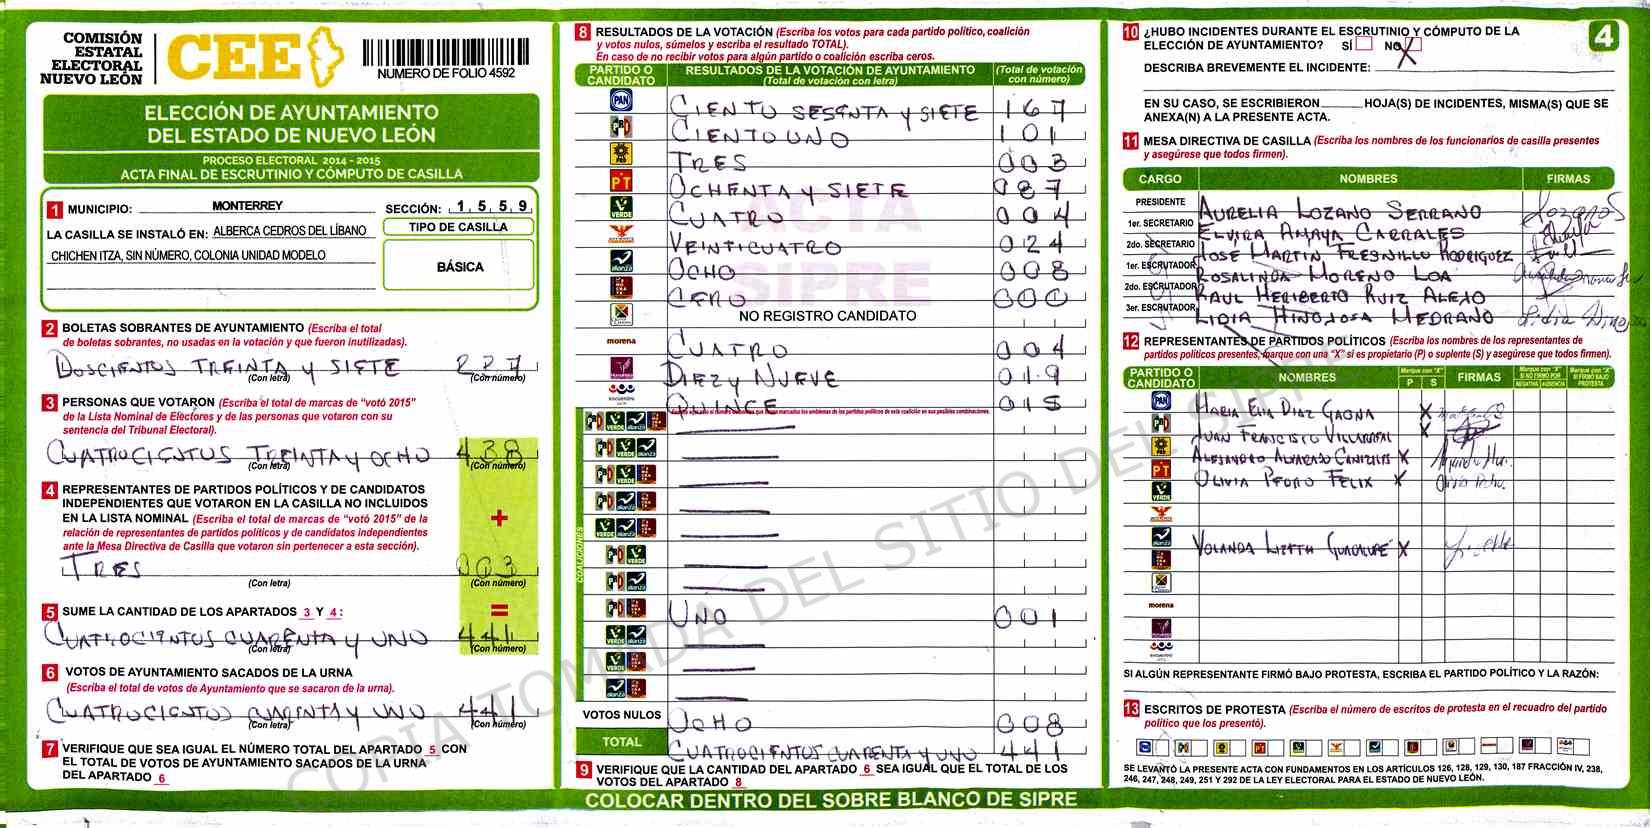 COMISIÓN
ESTATAL
ELECTORAL
NUEVO LEÓN
CEE
NUMERO DE FOLIO 4592
ELECCIÓN DE AYUNTAMIENTO
DEL ESTADO DE NUEVO LEÓN
PROCESO ELECTORAL 2014 - 2015
ACTA FINAL DE ESCRUTINIO Y CÓMPUTO DE CASILLA
1 MUNICIPIO: MONTERREY SECCIÓN: 1,5,5,9
LA CASILLA SE INSTALÓ EN: ALBERCA CEDROS DEL LÍBANO
CHICHEN ITZA, SIN NÚMERO, COLONIA UNIDAD MODELO
TIPO DE CASILLA
BÁSICA
2 BOLETAS SOBRANTES DE AYUNTAMIENTO (Escriba el total
de boletas sobrantes, no usadas en la votación y que fueron inutilizadas).
DOSCIENTOS TREINTA Y SIETE
(Con letra) (Con número)
3 PERSONAS QUE VOTARON (Escriba el total de marcas de "votó 2015"
de la Lista Nominal de Electores y de las personas que votaron con su
sentencia del Tribunal Electoral).
CUATROCIENTOS TREINTA Y OCHO 438
(Con letra) (Con número)
4 REPRESENTANTES DE PARTIDOS POLÍTICOS Y DE CANDIDATOS
INDEPENDIENTES QUE VOTARON EN LA CASILLA NO INCLUIDOS
EN LA LISTA NOMINAL (Escriba el total de marcas de "votó 2015" de la
relación de representantes de partidos políticos y de candidatos independientes
ante la Mesa Directiva de Casilla que votaron sin pertenecer a esta sección).
+
TRES 003
(Con letra) (Con número)
=
5 SUME LA CANTIDAD DE LOS APARTADOS 3 Y 4:
CUATROCIENTOS CUARENTA Y UNO 441
(Con letra) (Con número)
6 VOTOS DE AYUNTAMIENTO SACADOS DE LA URNA
(Escriba el total de votos de Ayuntamiento que se sacaron de la urna).
CUATROCIENTOS CUARENTA Y UNO 441
(Con letra) (Con número)
7 VERIFIQUE QUE SEA IGUAL EL NÚMERO TOTAL DEL APARTADO 5 CON
EL TOTAL DE VOTOS DE AYUNTAMIENTO SACADOS DE LA URNA
DEL APARTADO 6
8 RESULTADOS DE LA VOTACIÓN (Escriba los votos para cada partido político, coalición
y votos nulos, súmelos y escriba el resultado TOTAL).
En caso de no recibir votos para algún partido o coalición escriba ceros.
PARTIDO O
CANDIDATO
RESULTADOS DE LA VOTACIÓN DE AYUNTAMIENTO
(Total de votación con letra)
(Total de votación
con número)
PAN CIENTO SESENTA Y SIETE 167
PRD CIENTO UNO 101
PRD TRES 003
PT OCHENTA Y SIETE 087
VERDE CUATRO 004
VEINTICUATRO 024
alianza OCHO 008
CERO 000
NO REGISTRO CANDIDATO
morena CUATRO 004
DIEZ Y NUEVE 019
encuentro QUINCE 015
COALICIONES
UNO 001
VOTOS NULOS OCHO 008
TOTAL CUATROCIENTOS CUARENTA Y UNO 441
9 VERIFIQUE QUE LA CANTIDAD DEL APARTADO 6 SEA IGUAL QUE EL TOTAL DE LOS
VOTOS DEL APARTADO 8
COLOCAR DENTRO DEL SOBRE BLANCO DE SIPRE
ACTA
SIPRE
COPIA TOMADA DEL SITIO DEL SIPRE
4
10 ¿HUBO INCIDENTES DURANTE EL ESCRUTINIO Y CÓMPUTO DE LA
ELECCIÓN DE AYUNTAMIENTO? SÍ NO X
DESCRIBA BREVEMENTE EL INCIDENTE:
EN SU CASO, SE ESCRIBIERON HOJA(S) DE INCIDENTES, MISMA(S) QUE SE
ANEXA(N) A LA PRESENTE ACTA.
11 MESA DIRECTIVA DE CASILLA (Escriba los nombres de los funcionarios de casilla presentes
y asegúrese que todos firmen).
CARGO NOMBRES FIRMAS
PRESIDENTE AURELIA LOZANO SERRANO
1er. SECRETARIO ELVIRA AMAYA CARRALES
2do. SECRETARIO JOSE MARTIN FRESNILLO RODRIGUEZ
1er. ESCRUTADOR ROSALINDA MORENO LOA
2do. ESCRUTADOR RAUL HERIBERTO RUIZ ALEJO
3er. ESCRUTADOR LIDIA HINOJOSA MEDRANO
12 REPRESENTANTES DE PARTIDOS POLÍTICOS (Escriba los nombres de los representantes de
partidos políticos presentes, marque con una "X" si es propietario (P) o suplente (S) y asegúrese que todos firmen).
PARTIDO O
CANDIDATO
NOMBRES
Marque con "X"
P S
FIRMAS
Marque con "X"
SI NO FIRMÓ POR
NEGATIVA AUSENCIA
Marque con "X"
SI FIRMÓ BAJO
PROTESTA
PAN MARIA ELIA DIAZ GAONA X
JUAN FRANCISCO VILLARREAL X
ALEJANDRO ALVARADO X
PT OLIVIA PEDRO FELIX X
VERDE
alianza YOLANDA LIZETH GUADALUPE X
morena
SI ALGÚN REPRESENTANTE FIRMÓ BAJO PROTESTA, ESCRIBA EL PARTIDO POLÍTICO Y LA RAZÓN:
13 ESCRITOS DE PROTESTA (Escriba el número de escritos de protesta en el recuadro del partido
político que los presentó).
SE LEVANTÓ LA PRESENTE ACTA CON FUNDAMENTOS EN LOS ARTÍCULOS 126, 128, 129, 130, 187 FRACCIÓN IV, 238,
246, 247, 248, 249, 251 Y 292 DE LA LEY ELECTORAL PARA EL ESTADO DE NUEVO LEÓN.